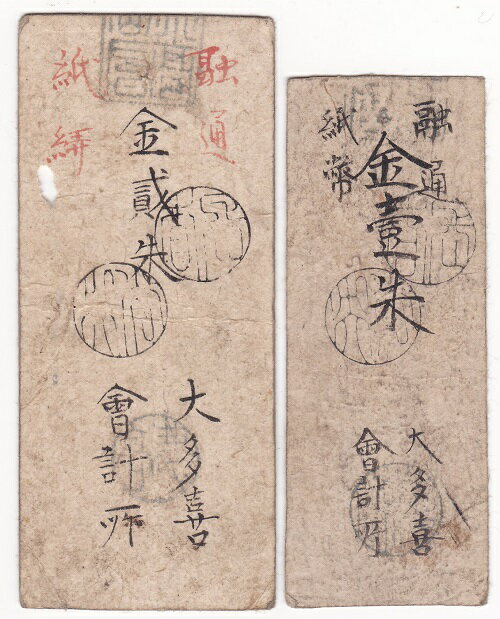 融通
金貳朱
紙絣
大多喜
會計所
融通
金壹朱
紙幣
大多喜
會計所